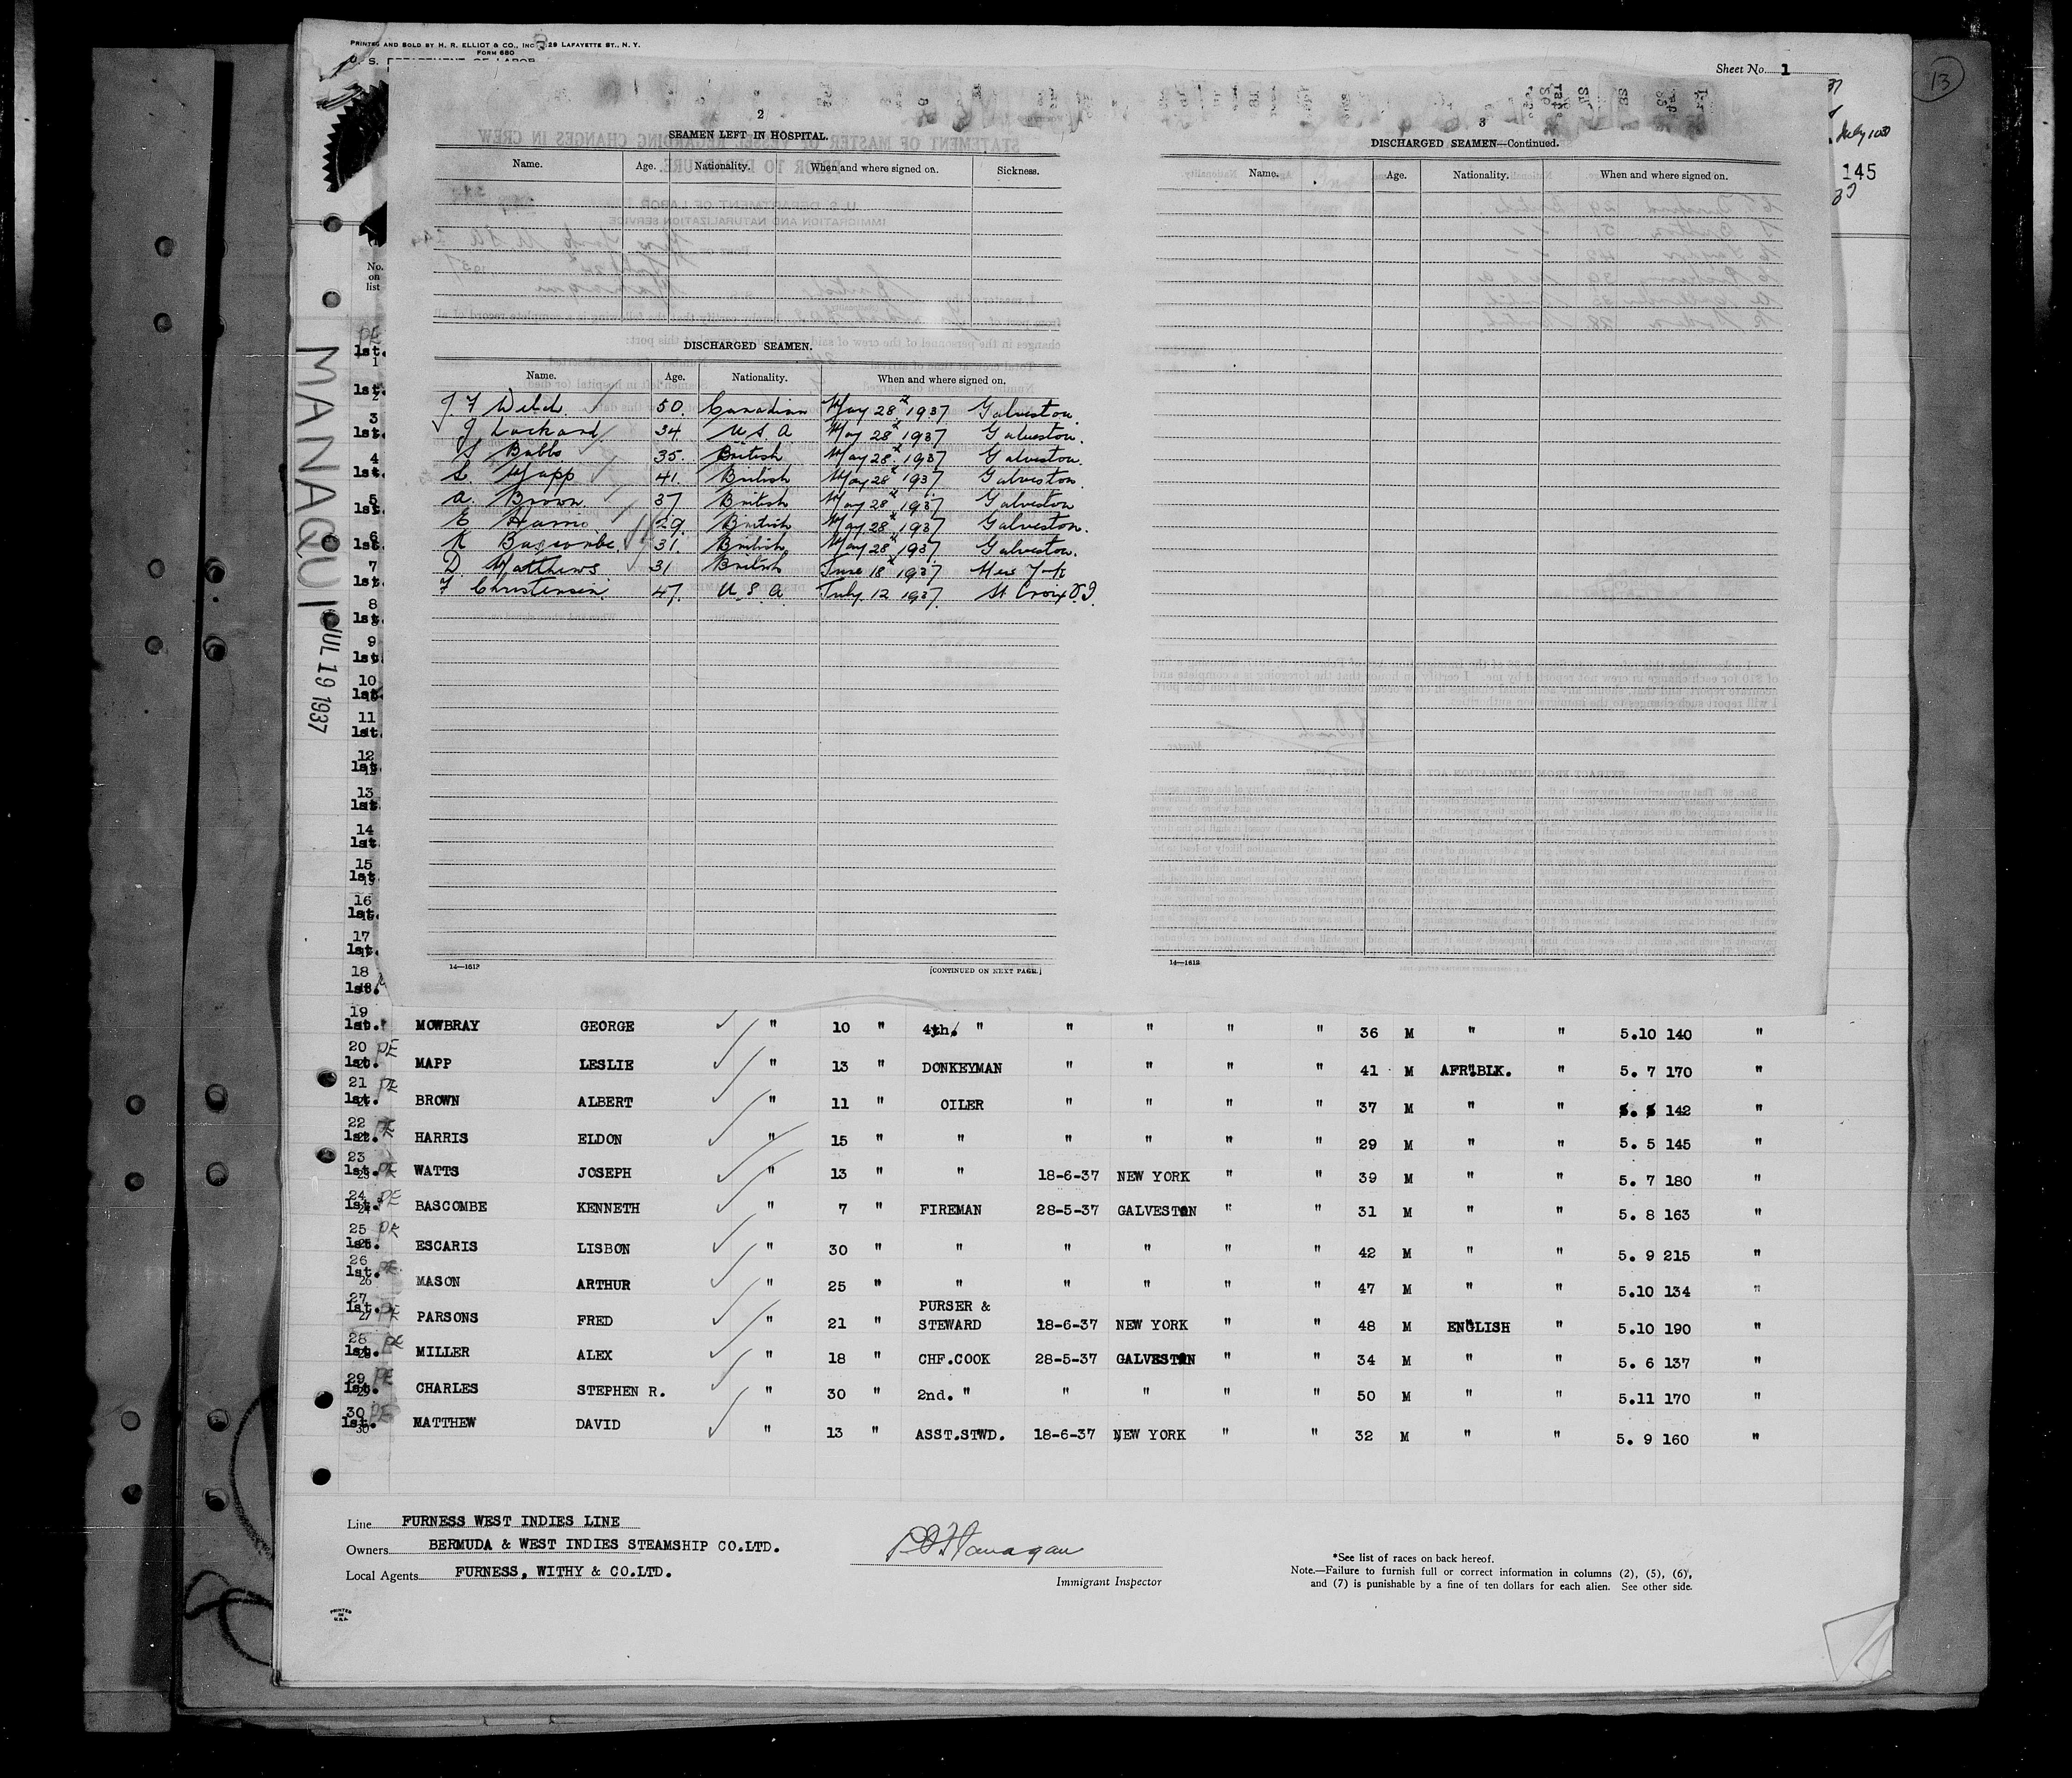 PRINTED AND SOLD BY H. R. ELLIOT & CO., INC. 29 LAFAYETTE ST., N. Y.
FORM 680
Sheet No. 1
13
145
MANAQUI JUL 19 1937
No. on list
2
SEAMEN LEFT IN HOSPITAL.
Name. Age. Nationality. When and where signed on. Sickness.
DISCHARGED SEAMEN.
Name. Age. Nationality. When and where signed on.
J. F Welch 50. Canadian May 28st 1937 Galveston
J Lockard 34 U S. A May 28st 1937 Galveston.
S Bubbs 35. British May 28st 1937 Galveston.
L. Mapp 41. British May 28st 1937 Galveston.
A. Brown 37 British May 28st 1937 Galveston
E Harris 29. British May 28st 1937 Galveston.
K Bascombe 31. British May 28st 1937 Galveston.
D. Matthews 31 British June 18st 1937 New York
F Christensen 47. U. S. A July 12 1937. St Croix V.I.
14—1612 [CONTINUED ON NEXT PAGE.]
3
DISCHARGED SEAMEN—Continued.
Name. Age. Nationality. When and where signed on.
14—1612
19 1st. MOWBRAY GEORGE " 10 " 4th. " " " " " 36 M " " 5.10 140 "
20 1st. MAPP LESLIE " 13 " DONKEYMAN " " " " 41 M AFR.BLK. " 5. 7 170 "
21 1st. BROWN ALBERT " 11 " OILER " " " " 37 M " " 142 "
22 1st. HARRIS ELDON " 15 " " " " " " 29 M " " 5. 5 145 "
23 1st. WATTS JOSEPH " 13 " " 18-6-37 NEW YORK " " 39 M " " 5. 7 180 "
24 1st. BASCOMBE KENNETH " 7 " FIREMAN 28-5-37 GALVESTON " " 31 M " " 5. 8 163 "
25 1st. ESCARIS LISBON " 30 " " " " " " 42 M " " 5. 9 215 "
26 1st. MASON ARTHUR " 25 " " " " " " 47 M " " 5.10 134 "
27 1st. PARSONS FRED " 21 " PURSER & STEWARD 18-6-37 NEW YORK " " 48 M ENGLISH " 5.10 190 "
28 1st. MILLER ALEX " 18 " CHF.COOK 28-5-37 GALVESTON " " 34 M " " 5. 6 137 "
29 1st. CHARLES STEPHEN R. " 30 " 2nd. " " " " " 50 M " " 5.11 170 "
30 1st. MATTHEW DAVID " 13 " ASST.STWD. 18-6-37 NEW YORK " " 32 M " " 5. 9 160 "
Line FURNESS WEST INDIES LINE
Owners BERMUDA & WEST INDIES STEAMSHIP CO.LTD.
Local Agents FURNESS, WITHY & CO.LTD.
Immigrant Inspector
*See list of races on back hereof.
Note.—Failure to furnish full or correct information in columns (2), (5), (6),
and (7) is punishable by a fine of ten dollars for each alien. See other side.
PRINTED IN U.S.A.